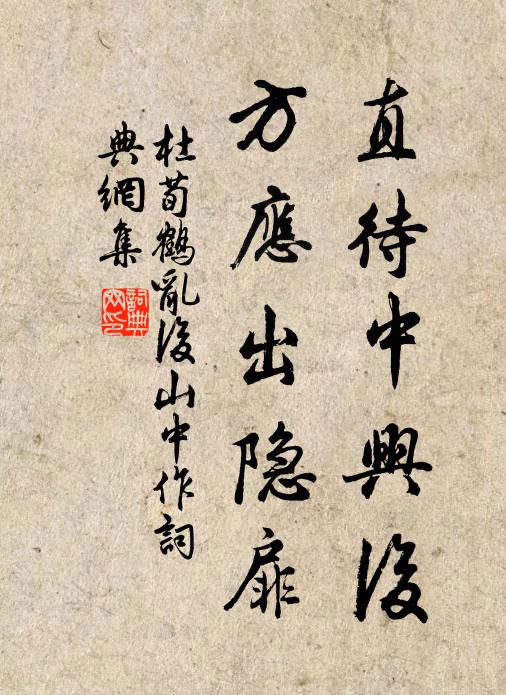 直待中興後
方應出隐扉
杜荀鶴亂後山中作詞
典網集
詞典
网印